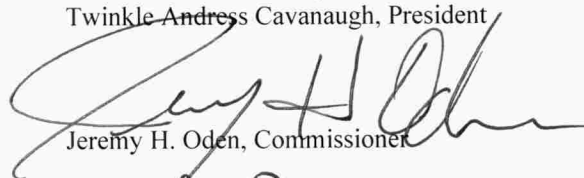 Twinkle Andress Cavanaugh, President
Jeremy H Oden
Jeremy H. Oden, Commissioner